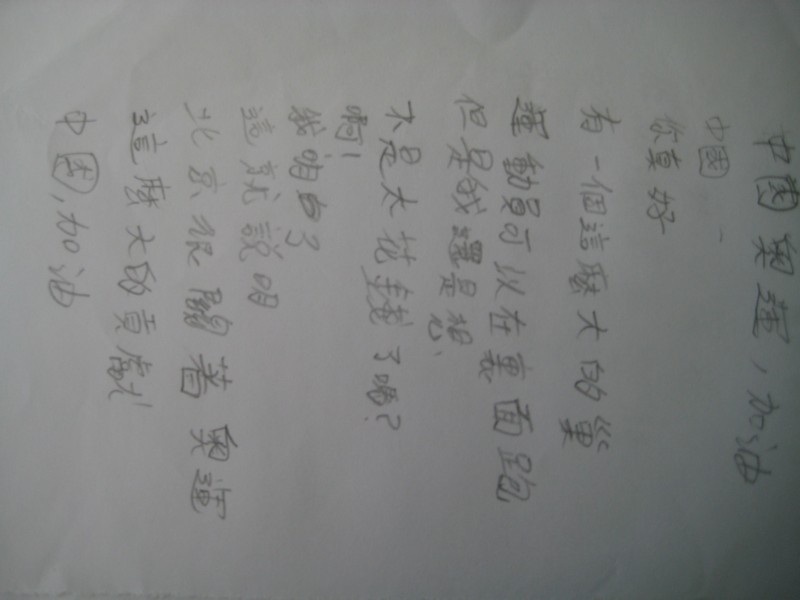 中國奧運,加油
中國
你真好
有一個這麼大的巢
運動員可以在裏面跑
但是我還是想,
不是太花錢了嗎?
啊!
我明白了
這就說明
北京很關著奧運
這麼大的貢獻!
中国,加油